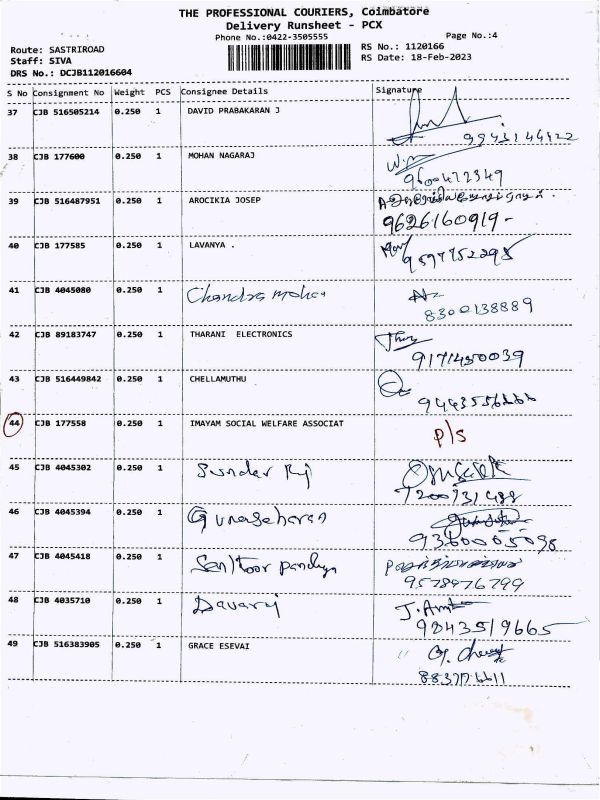 THE PROFESSIONAL COURIERS, Coimbatore
Delivery Runsheet - PCX
Phone No.:0422-3505555 Page No.:4
Route: SASTRIROAD RS No.: 1120166
Staff: SIVA RS Date: 18-Feb-2023
DRS No.: DCJB112016604
S No Consignment No Weight PCS Consignee Details Signature
37 CJB 516505214 0.250 1 DAVID PRABAKARAN J
38 CJB 177600 0.250 1 MOHAN NAGARAJ
9600472349
39 CJB 516487951 0.250 1 AROCIKIA JOSEP
9626160919-
40 CJB 177585 0.250 1 LAVANYA .
41 CJB 4045080 0.250 1 Chandra mohan
8300138889
42 CJB 89183747 0.250 1 THARANI ELECTRONICS
9171450039
43 CJB 516449842 0.250 1 CHELLAMUTHU
44 CJB 177558 0.250 1 IMAYAM SOCIAL WELFARE ASSOCIAT P/S
45 CJB 4045302 0.250 1 Sundar Raj
46 CJB 4045394 0.250 1 Gunasekaran
9360005098
47 CJB 4045418 0.250 1
9578976799
48 CJB 4035710 0.250 1
9843519665
49 CJB 516383905 0.250 1 GRACE ESEVAI